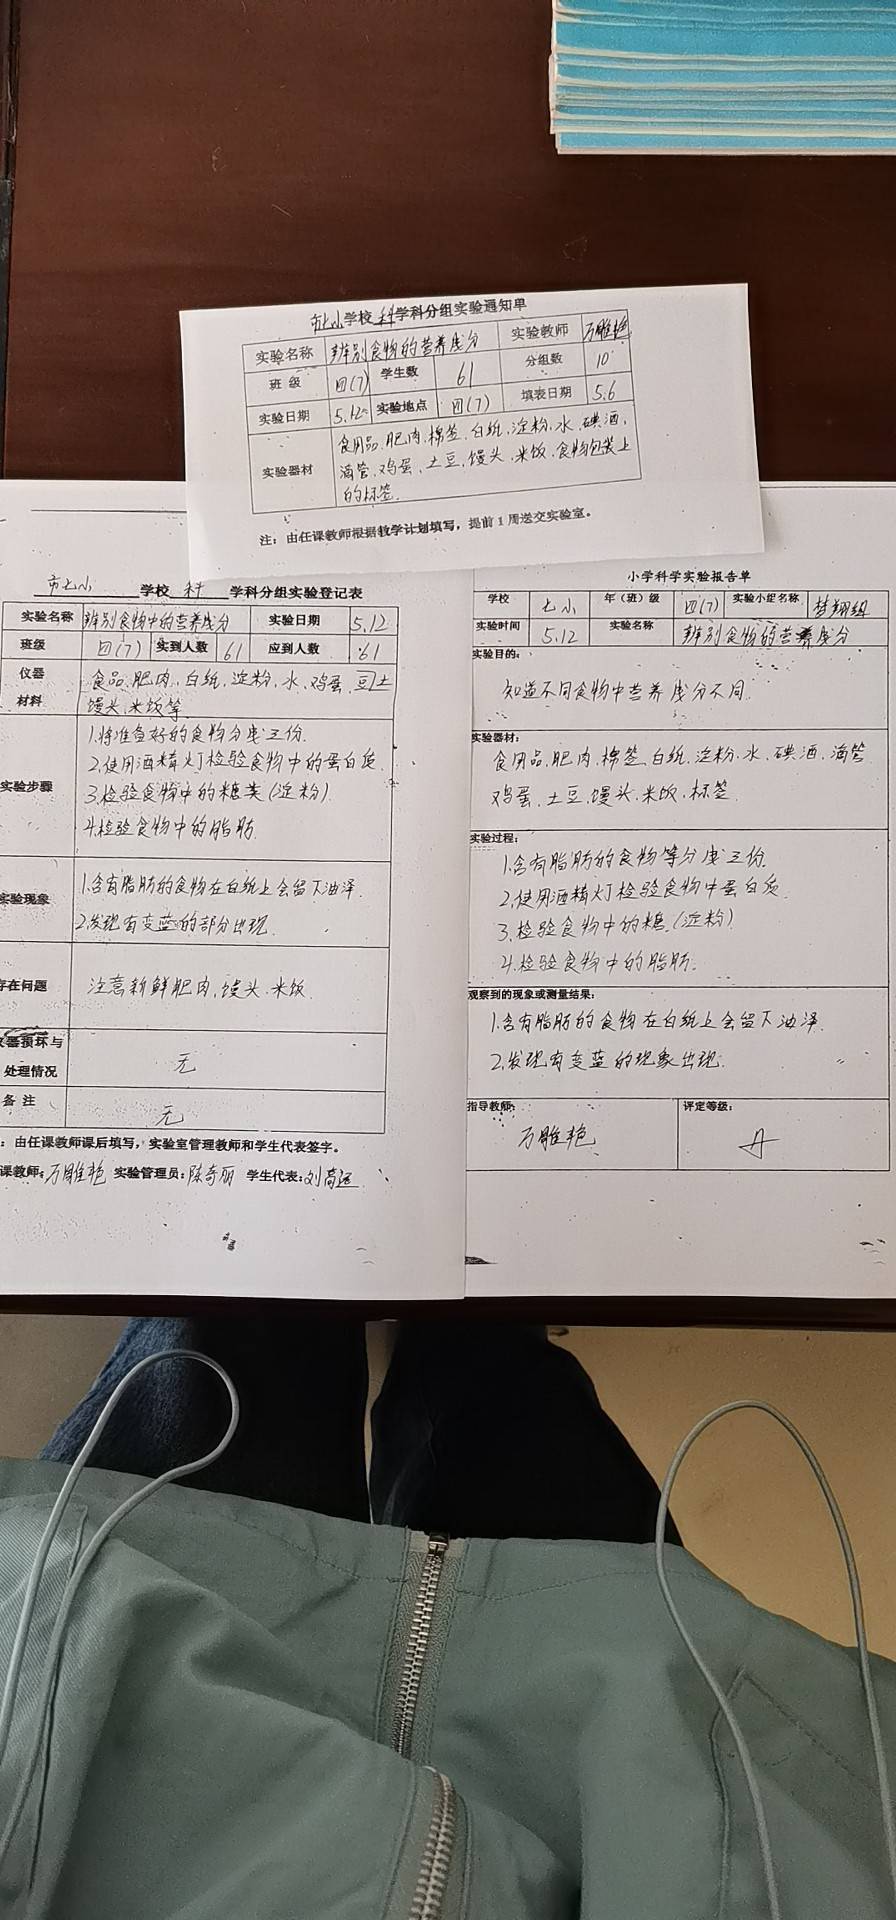 市七小学校 科学科分组实验通知单
实验名称 辨别食物的营养成分 实验教师 万雕艳
班级 四(7) 学生数 61 分组数 10
实验日期 5.12 实验地点 四(7) 填表日期 5.6
实验器材 食用品、肥肉、棉签、白纸、淀粉、水、碘酒、
滴管、鸡蛋、土豆、馒头、米饭、食物包装上
的标签.
注：由任课教师根据教学计划填写，提前1周送交实验室。
市七小 学校 科 学科分组实验登记表
实验名称 辨别食物中的营养成分 实验日期 5.12
班级 四(7) 实到人数 61 应到人数 61
仪器
材料
食品、肥肉、白纸、淀粉、水、鸡蛋、豆土
馒头、米饭等
实验步骤
1.将准备好的食物分成三份.
2.使用酒精灯检验食物中的蛋白质.
3.检验食物中的糖类(淀粉).
4.检验食物中的脂肪.
实验现象
1.含有脂肪的食物在白纸上会留下油泽.
2.发现有变蓝的部分出现.
存在问题 注意新鲜肥肉,馒头.米饭.
仪器损坏与
处理情况
无
备注 无
：由任课教师课后填写，实验室管理教师和学生代表签字。
课教师：万雕艳 实验管理员：陈奇丽 学生代表：刘高远
小学科学实验报告单
学校 七小 年（班）级 四(7) 实验小组名称 梦翔组
实验时间 5.12 实验名称 辨别食物的营养成分
实验目的：
知道不同食物中营养成分不同.
实验器材：
食用品、肥肉、棉签、白纸、淀粉、水、碘酒、滴管
鸡蛋、土豆、馒头、米饭、标签.
实验过程：
1.含有脂肪的食物等分成三份.
2.使用酒精灯检验食物中蛋白质.
3.检验食物中的糖.(淀粉)
4.检验食物中的脂肪.
观察到的现象或测量结果：
1.含有脂肪的食物在白纸上会留下油泽.
2.发现有变蓝的现象出现.
指导教师： 评定等级：
万雕艳